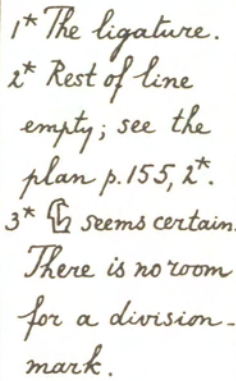 1* The ligature.
2* Rest of line
empty; see the
plan p. 155, 2*.
3* seems certain.
There is no room
for a division-
mark.